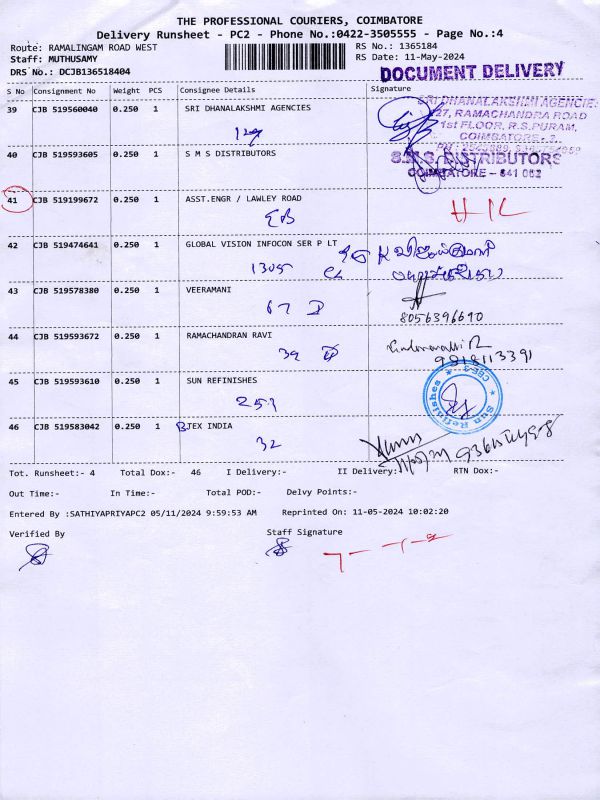 THE PROFESSIONAL COURIERS, COIMBATORE
Delivery Runsheet - PC2 - Phone No.:0422-3505555 - Page No.:4
Route: RAMALINGAM ROAD WEST
RS No.: 1365184
Staff: MUTHUSAMY
RS Date: 11-May-2024
DRS No.: DCJB136518404
DOCUMENT DELIVERY
S No Consignment No Weight PCS Consignee Details Signature
39 CJB 519560040 0.250 1 SRI DHANALAKSHMI AGENCIES
SRI DHANALAKSHMI AGENCIE
27, RAMACHANDRA ROAD
1st FLOOR, R.S.PURAM,
COIMBATORE- 2.
40 CJB 519593605 0.250 1 S M S DISTRIBUTORS
S.M.S. DISTRIBUTORS
COIMBATORE - 641 002
41 CJB 519199672 0.250 1 ASST.ENGR / LAWLEY ROAD
EB
42 CJB 519474641 0.250 1 GLOBAL VISION INFOCON SER P LT
1305
43 CJB 519578380 0.250 1 VEERAMANI
67
8056396690
44 CJB 519593672 0.250 1 RAMACHANDRAN RAVI
39
45 CJB 519593610 0.250 1 SUN REFINISHES
251
Sun Refinishes
CBE-2
46 CJB 519583042 0.250 1 BTEX INDIA
32
Tot. Runsheet:- 4 Total Dox:- 46 I Delivery:- II Delivery: RTN Dox:-
Out Time:- In Time:- Total POD:- Delvy Points:-
Entered By :SATHIYAPRIYAPC2 05/11/2024 9:59:53 AM Reprinted On: 11-05-2024 10:02:20
Verified By Staff Signature